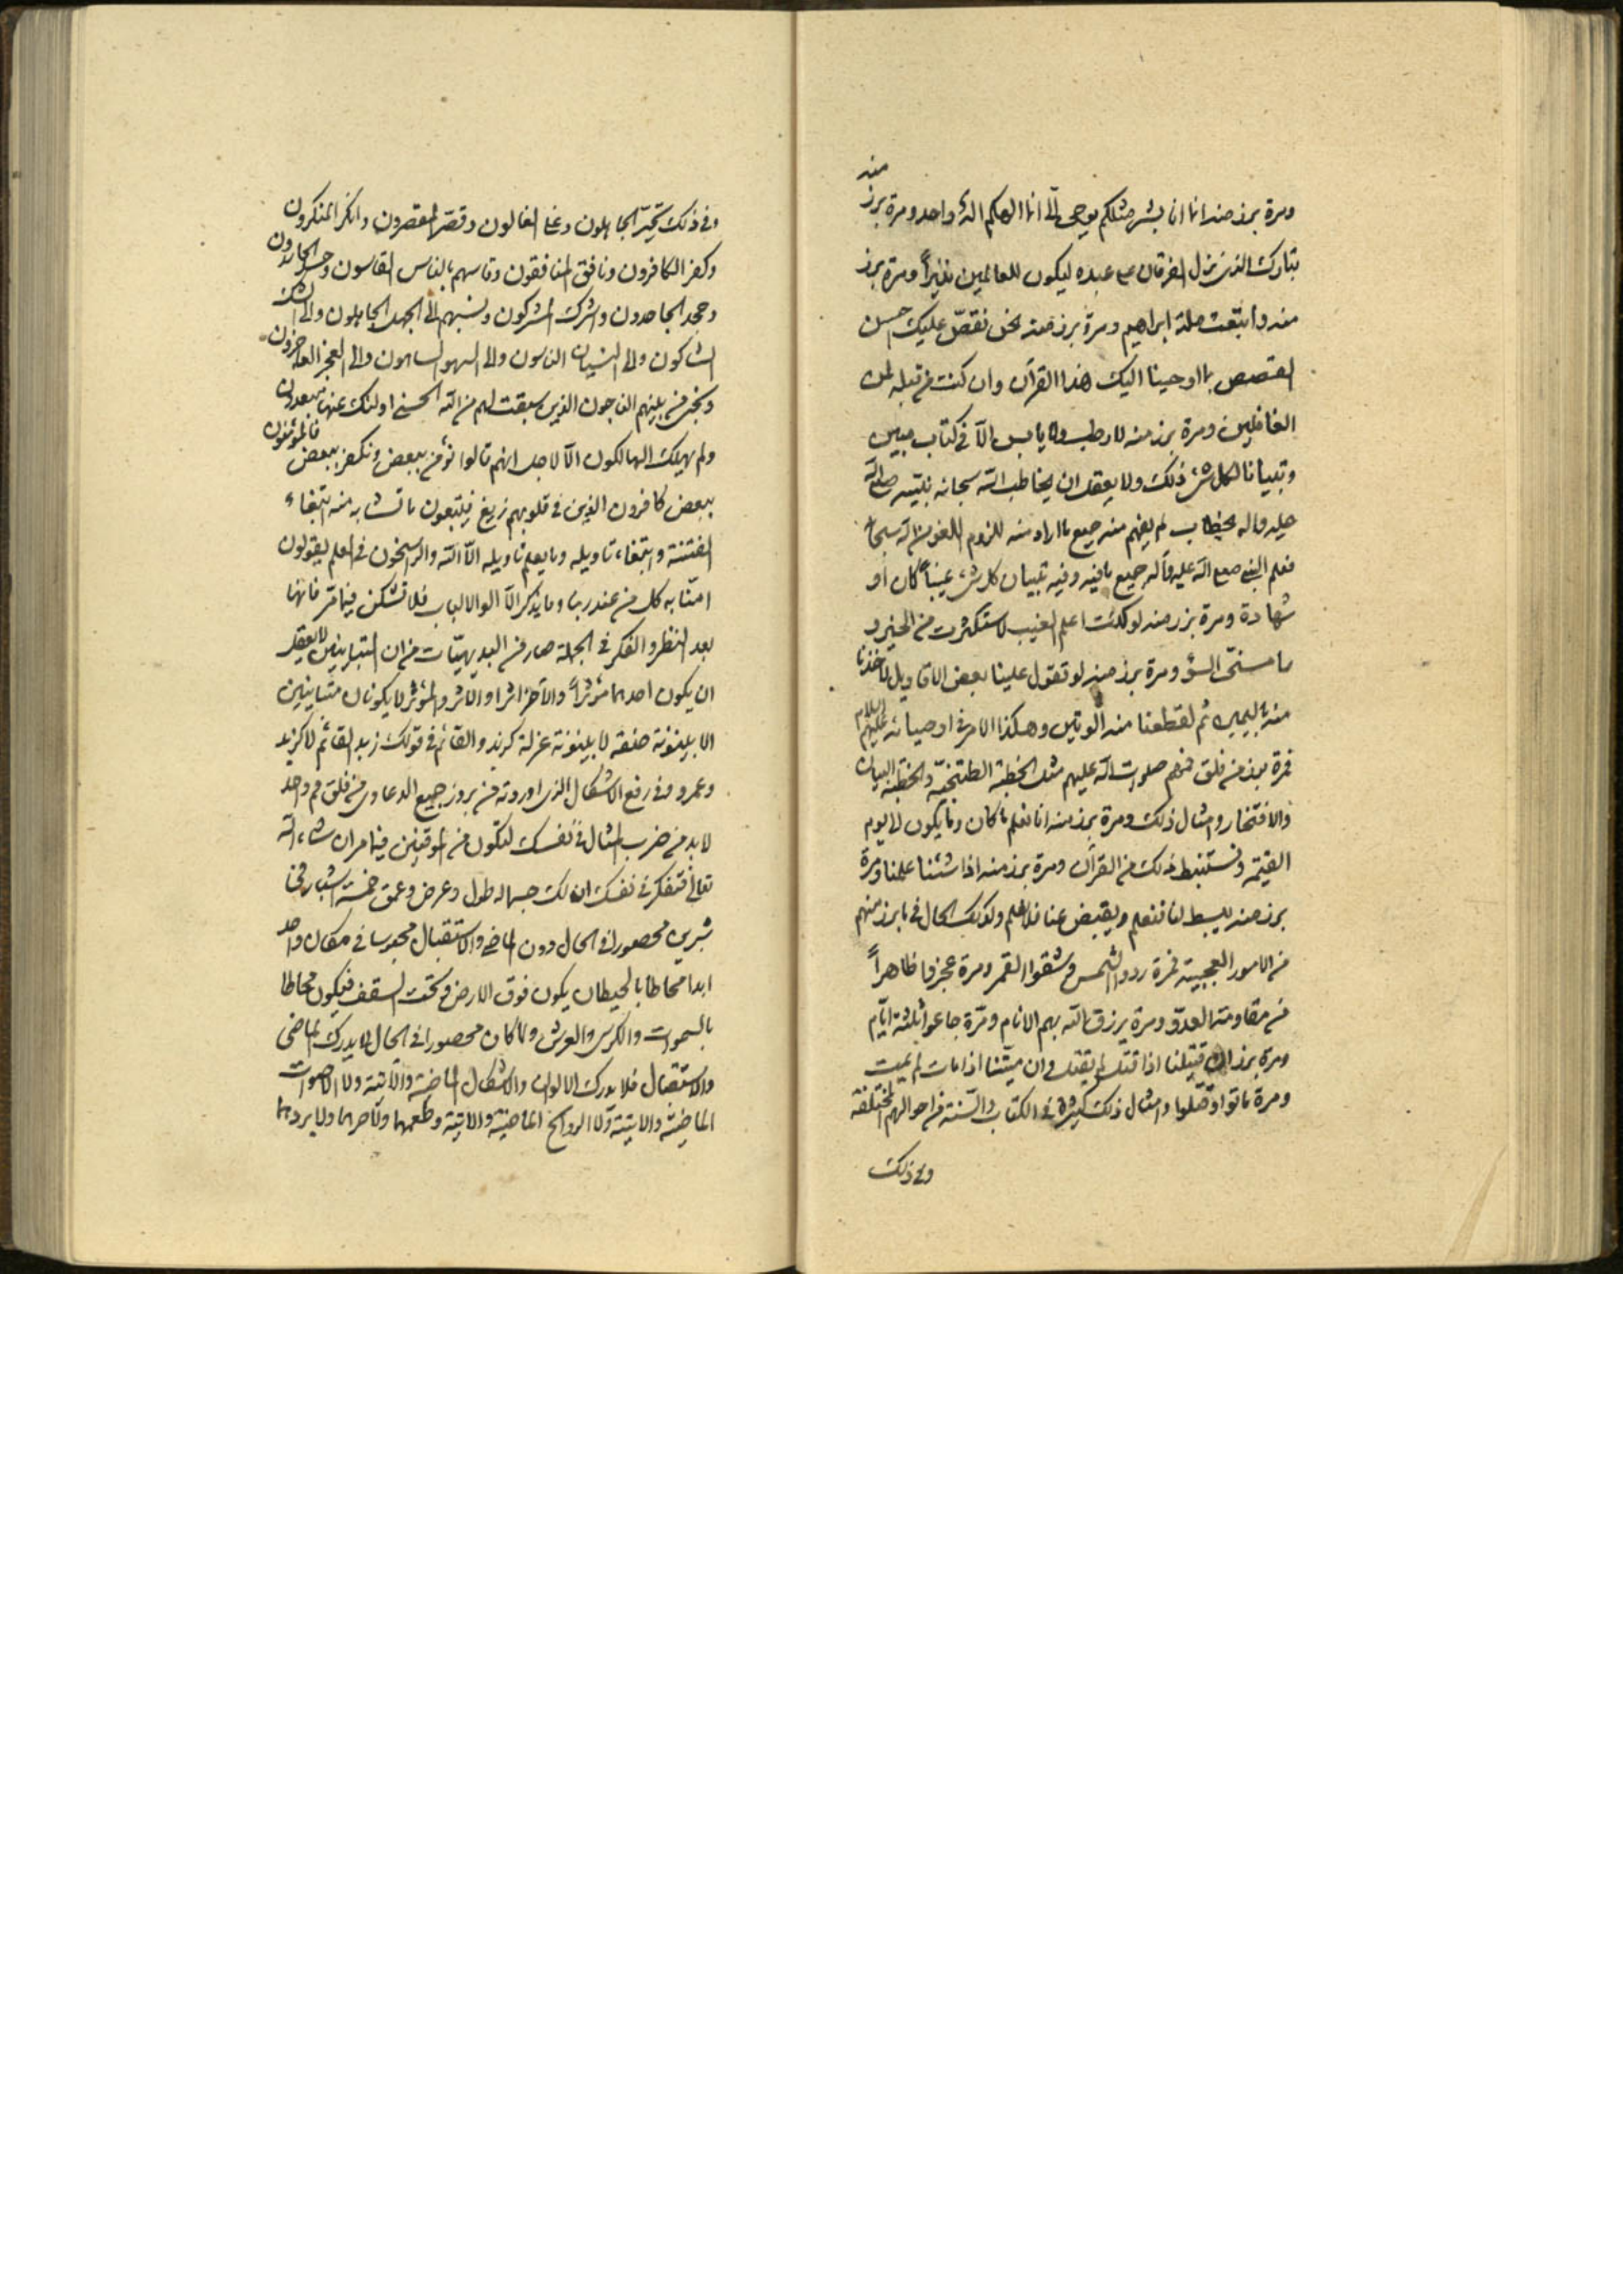 ومرة برز منه انا انا بشر مثلكم يوحى الىّ انما الهكم اله واحد ومرة برز منه
تبارك الذى نزل الفرقان على عبده ليكون للعالمين نذيراً ومرة برز
منه واتبعت ملة ابراهيم ومرة برز منه نحن نقصّ عليك احسن
القصص بما اوحينا اليك هذا القرآن وان كنت من قبله لمن
الغافلين ومرة برز منه لا رطب ولا يابس الّا فى كتاب مبين
وتبيانا لكل شئ ذلك ولا يعقل ان يخاطب الله سبحانه نبيّه صلى الله
عليه واله بخطاب لم يفهم منه جميع ما اراد منه للزوم اللغو من الله سبحانه
فعلم النبى صلى الله عليه وآله جميع ما فيه وفيه تبيان كل شئ غيباً كان او
شهادة ومرة برز منه لو كنت اعلم الغيب لاستكثرت من الخير و
ما مسنى السوٓء ومرة برز منه لو تقول علينا بعض الاقاويل لاخذنا
منه باليمين ثم لقطعنا منه الوتين وهكذا الامر فى اوصيائه عليهم السلام
فمرة برز من فلق فمهم صلوات الله عليهم مثل الخطبة الطتنجيّة والخطبة البيان
والافتخار وامثال ذلك ومرة برز منه انا نعلم ما كان وما يكون الى يوم
القيمة ونستنبط ذلك من القرآن ومرة برز منه اذا شئنا علمنا ومرة
برز منه يبسط لنا فنعلم ويقبض عنا فلا نعلم وكذلك الحال فى ما برز منهم
من الامور العجيبة فمرة ردوا الشمس وشقوا القمر ومرة عجزوا ظاهراً
من مقاومة العدوّ ومرة يرزق الله بهم الانام ومرّة جاعوا ثلثة ايّام
ومرة برز ان قتيلنا اذا قتل لم يقتل وان ميّتنا اذا مات لم يمت
ومرة ماتوا وقتلوا وامثال ذلك كثيرة فى الكتاب والسّنة من احوالهم المختلفة
وفى ذلك
وفى ذلك تحيّر الجاهلون وغلا الغالون وقصّر المقصرون وانكر المنكرون
وكفر الكافرون ونافق المنافقون وقاسهم بالناس القاسون
وجحد الجاحدون واشرك المشركون ونسبهم الى الجهل الجاهلون والى الشك
الشاكون والى النسيان الناسون والى السهو الساهون والى العجز العاجزون
ونجى من بينهم الناجون الذين سبقت لهم من الله الحسنى اولئك عنها مبعدون
ولم يهلك الهالكون الّا لاجل انهم قالوا نؤمن ببعض ونكفر ببعض فالمؤمنون
ببعض كافرون الذين فى قلوبهم زيغ فيتبعون ما تشابه منه ابتغاء
الفتنة وابتغاء تاويله وما يعلم تاويله الّا الله والراسخون فى العلم يقولون
امنّا به كل من عند ربنا وما يذكر الّا الوا الالباب فلا تشكن فيما مرّ فانها
بعد النظر والفكر فى الجملة صار من البديهيّات من ان المتباينين لا يعقل
ان يكون احدهما مؤثراً والآخر اثرا والاثر والمؤثر لا يكونان متباينين
الا بينونة صفة لا بينونة عزلة كزيد والقائم فى قولك زيد القائم لا كزيد
وعمرو وفى رفع الاشكال الذى اوردته من بروز جميع الدعاوى من فلق فم واحد
لا بد من ضرب المثال فى نفسك لتكون من الموقنين فيما مر ان شاء الله
تعالى فتفكر فى نفسك ان لك جسما له طول وعرض وعمق خمسة اشبار فى
شبرين محصورا فى الحال دون الماضى والاستقبال محبوسا فى مكان واحد
ابدا محاطا بالحيطان يكون فوق الارض وتحت السقف فيكون محاطا
بالسموات والكرسى والعرش ولما كان محصورا فى الحال لا يدرك الماضى
والاستقبال فلا يدرك الالوان والاشكال الماضية والآتية ولا الاصوات
الماضية والاتية ولا الروائح الماضية والاتية وطعمهما ولا حرهما ولا بردهما